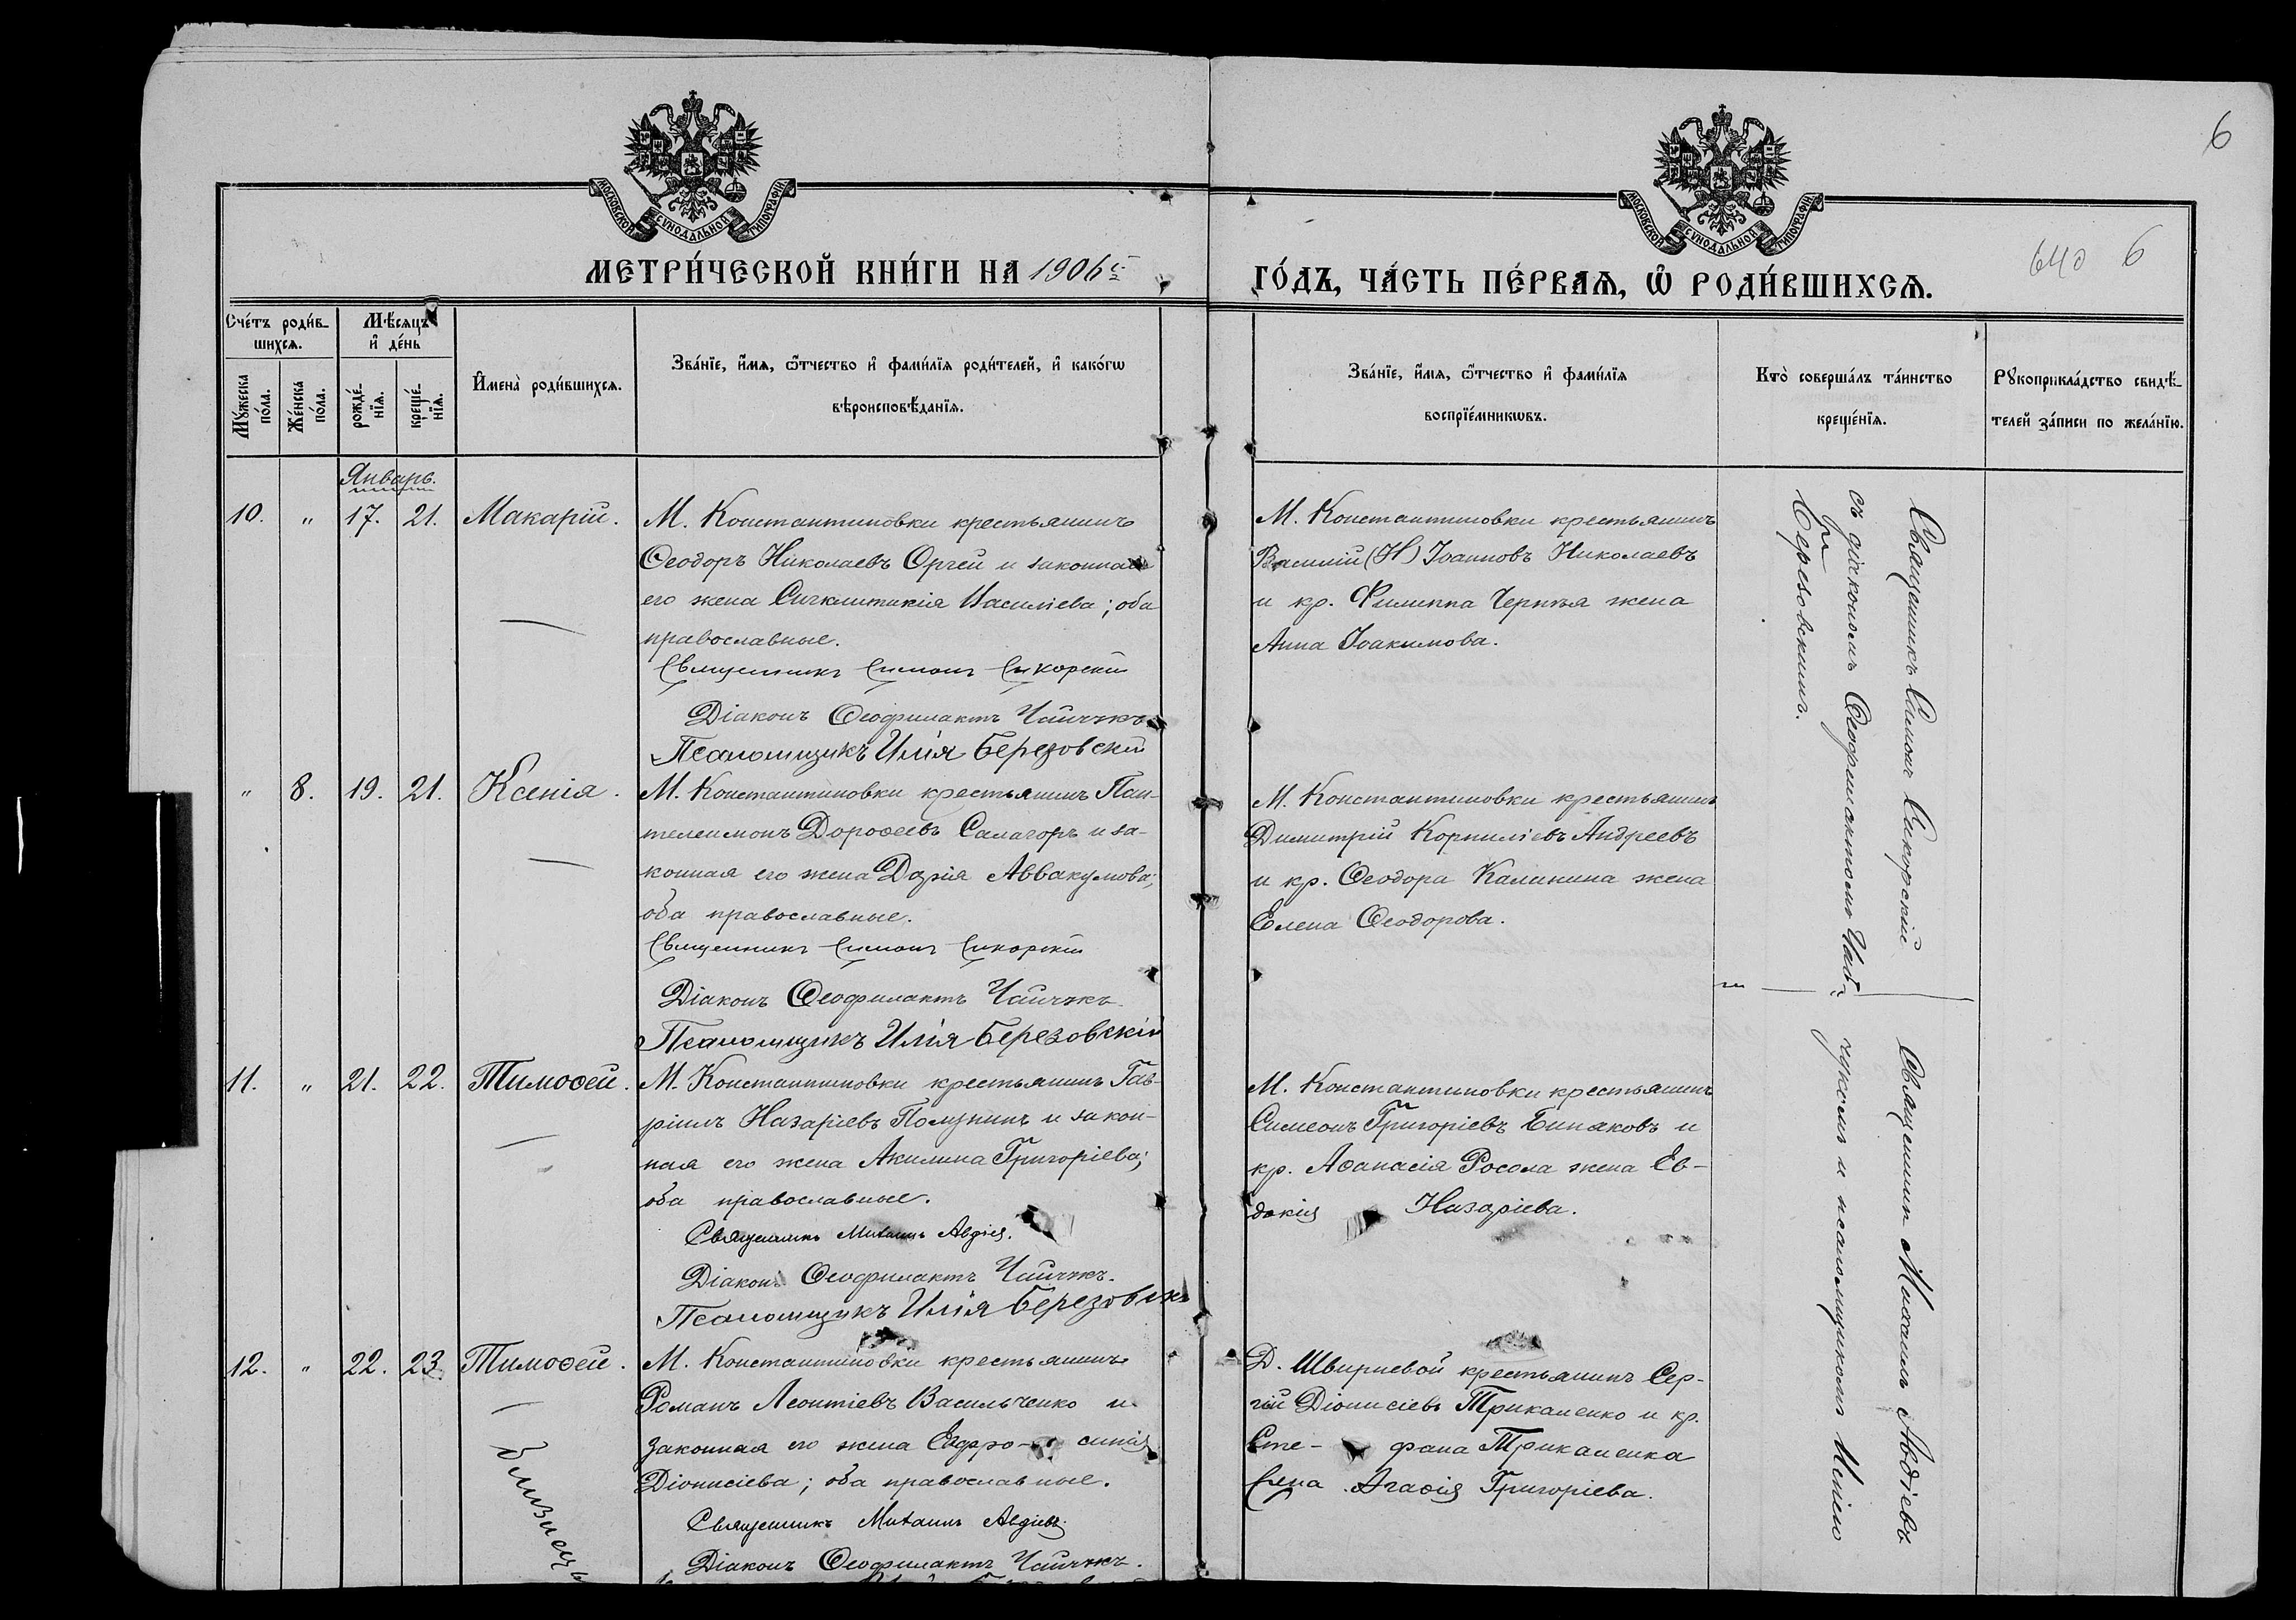 6
МОСКОВСКОЙ СѴНОДАЛЬНОЙ ТИПОГРАФІИ
МОСКОВСКОЙ СѴНОДАЛЬНОЙ ТИПОГРАФІИ
640 6
МЕТРИ́ЧЕСКОЙ КНИ́ГИ НА 1906 г.
ГО́ДЪ, ЧА́СТЬ ПЕ́РВАѦ, Ѡ҆ РОДИ́ВШИХСѦ.
Сче́тъ роди́в-
шихсѧ.
Мѣ́сѧцъ
и҆ де́нь
Мꙋ́жеска
по́ла.
Же́нска
по́ла.
рожде́-
нїѧ.
креще́-
нїѧ.
И҆мена̀ роди́вшихсѧ.
Зва́нїе, и҆́мѧ, ѻ҆́тчество и҆ фами́лїѧ роди́телей, и҆ како́гѡ
вѣроисповѣ́данїѧ.
Зва́нїе, и҆́мѧ, ѻ҆́тчество и҆ фами́лїѧ
воспрїе́мникѡвъ.
Кто̀ соверша́лъ та́инство
креще́нїѧ.
Рꙋкоприкла́дство свидѣ́-
телей за́писи по жела́нїю.
Январь.
10. " 17. 21. Макарій.
М. Константиновки крестьянинъ
Ѳеодоръ Николаевъ Оргей и законная
его жена Сигклитикія Василіева; оба
православные.
Священникъ Симонъ Сикорскій
Діаконъ Ѳеофилактъ
Псаломщикъ Илія Березовскій
М. Константиновки крестьянинъ
Василій (Н) Іоанновъ Николаевъ
и кр. Филиппа жена
Анна Іоакимова.
Священникъ Симонъ Сикорскій
съ діакономъ Ѳеофилактомъ
Березовскимъ.
" 8. 19. 21. Ксенія.
М. Константиновки крестьянинъ Пан-
телеимонъ Дороѳеевъ Салагоръ и за-
конная его жена Дарія Аввакумова;
оба православные.
Священникъ Симонъ Сикорскій
Діаконъ Ѳеофилактъ
Псаломщикъ Илія Березовскій
М. Константиновки крестьянинъ
Димитрій Корниліевъ Андреевъ
и кр. Ѳеодора Калинина жена
Елена Ѳеодорова.
11. " 21. 22. Тимоѳей.
М. Константиновки крестьянинъ Гав-
ріилъ Назаріевъ и закон-
ная его жена Акилина Григоріева;
оба православные.
Священникъ Михаилъ Авдіев.
Діаконъ Ѳеофилактъ
Псаломщикъ Илія Березовск
М. Константиновки крестьянинъ
Симеонъ Григоріевъ Биняковъ и
кр. Аѳанасія Росола жена Ев-
докія Назаріева.
Священникъ Михаилъ Авдіевъ
и псаломщикомъ Иліею
12. " 22. 23. Тимоѳей.
близнецъ
М. Константиновки крестьянинъ
Романъ Леонтіевъ Васильченко и
законная его жена Евфро- синія
Діонисіева; оба православные.
Священникъ Михаилъ Авдіевъ
Діаконъ Ѳеофилактъ
Д. Швырневой крестьянинъ Сер-
гій Діонисіевъ Трикаленко и кр.
Сте- фана Трикаленка
жена Агаѳія Григоріева.